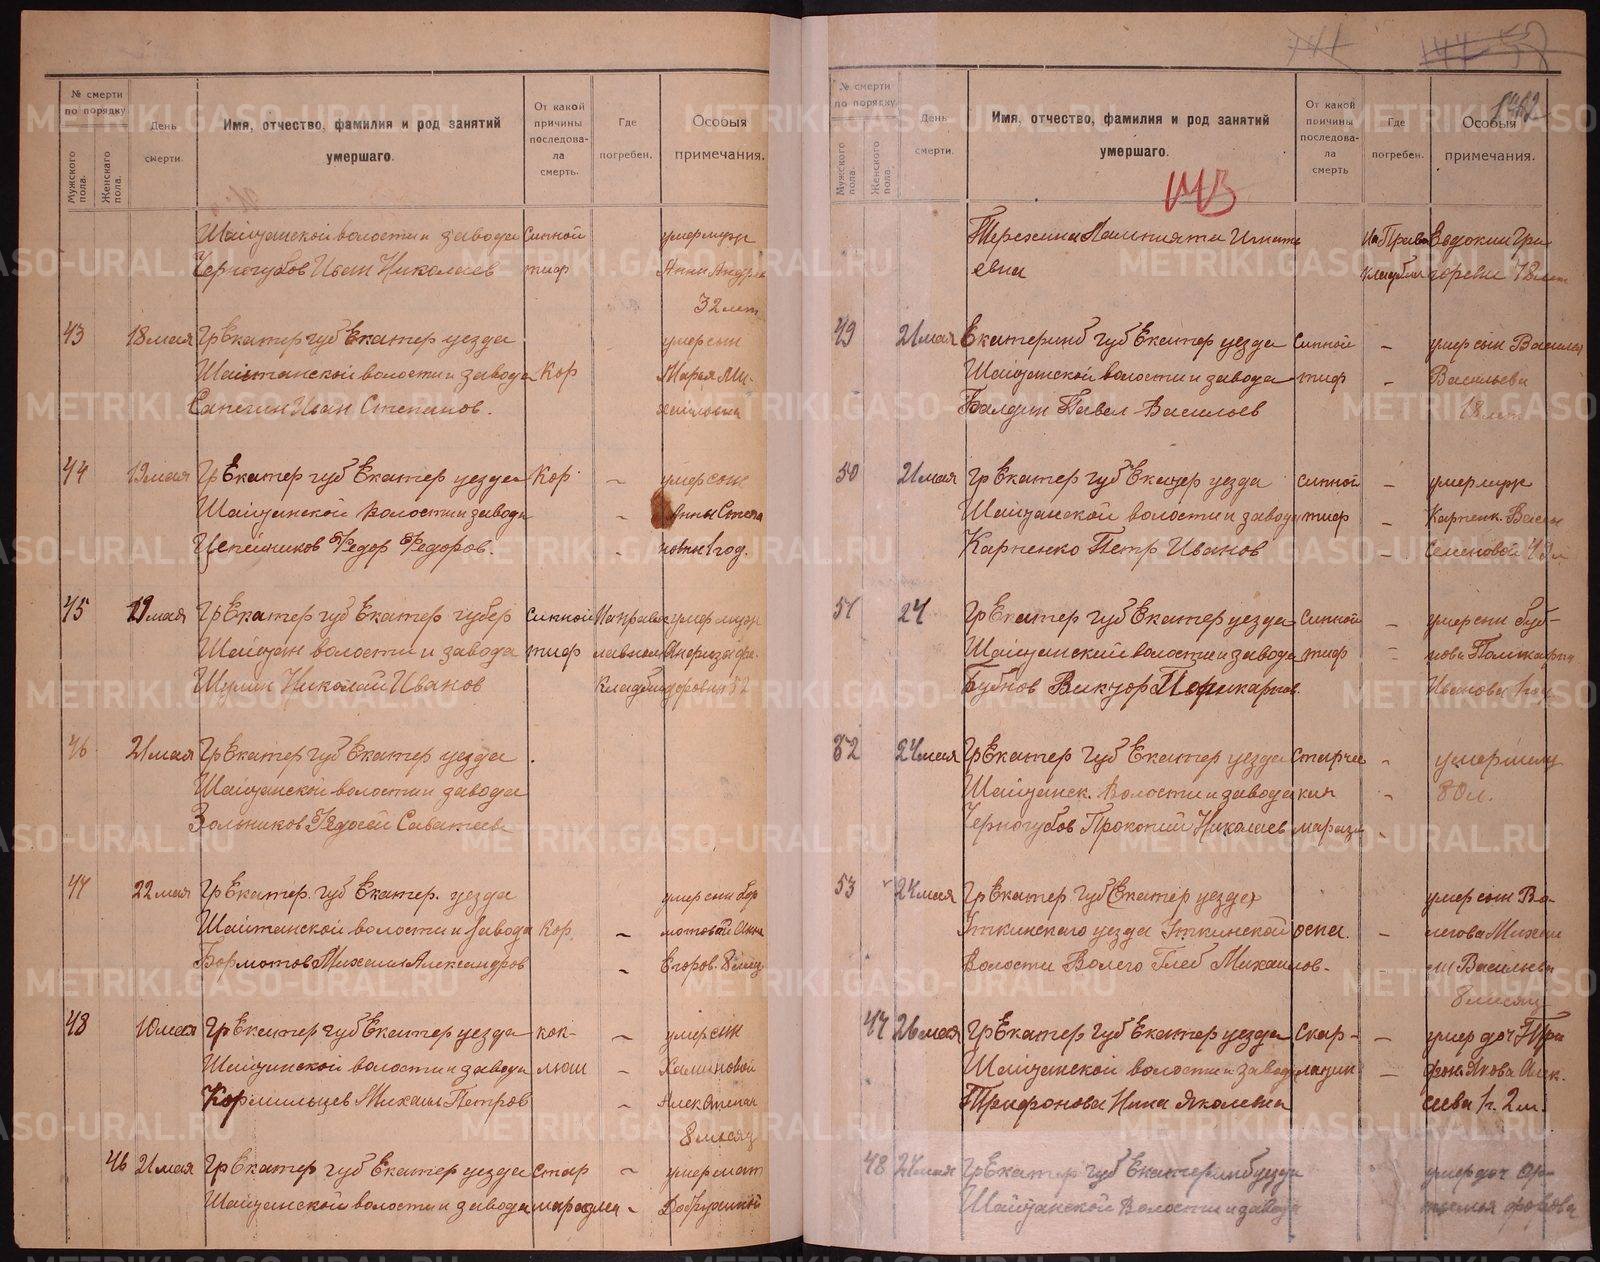 № смерти
по порядку.
Мужского
пола.
Женскаго
пола.
День
смерти.
Имя, отчество, фамилия и род занятий
умершаго.
От какой
причины
последова-
ла
смерть.
Где
погребен.
Особыя
примечания.
Шайтанской волости и завода сыпной умер муж
Черногубов Иван Николаев тиф Анны Андре
32 лет
43 18 мая Гр Екатер губ Екатер уезда умер сын
Шайтанской волости и завода Кор Марья Ми-
Сапегин Иван Степанов. хайловны
44 19 мая Гр Екатер губ Екатер уезда Кор - умер сын
Шайтанской волости и завода - Анны Степа
Цепейников Федор Федоров. - новны 1 год.
45 19 мая Гр Екатер губ Екатер губер сыпной На правос умер муж
Шайтан волости и завода тиф лавном
Шурин Николай Иванов кладбищ 52
46 21 мая Гр Екатер губ Екатер уезда
Шайтанской волости и завода
Зольников Федосей Саватеев
47 22 мая Гр Екатер. губ Екатер. уезда умер сын Бор
Шайтанской волости и завода Кор. - мотовой Анна
Бормотов Михаил Александров - Егоров. 8 месяц
48 10 мая Гр Екатер губ Екатер уезда кок- - умер сын
Шайтанской волости и завода люш -
Кормильцев Михаил Петров - Алек Степан
8 месяц
46 21 мая Гр Екатер губ Екатер уезда стар - умер мат
Шайтанской волости и завода маразма -
144
1/62
№ смерти
по порядку
Мужского
пола.
Женского
пола.
День
смерти.
Имя, отчество, фамилия и род занятий
умершаго.
От какой
причины
последова-
ла
смерть
Где
погребен.
Особыя
примечания.
143
Терехина На Прав Евдокии Гри
евна кладбищ горевне 78 лет
49 21 мая Екатеринб губ Екатер уезда сыпной - умер сын Василия
Шайтанской волости и завода тиф - Васильева
Балдин Павел Васильев 18 лет
50 21 мая Гр Екатер губ Екатер уезда сыпной - умер муж
Шайтанской волости и завода тиф - Карпенк. Васи
Карпенко Петр Иванов - Семеновой
51 24 Гр Екатер губ Екатер уезда сыпной - умер сын Буб-
Шайтанский волости и завода тиф - нова Поликарпа
Бубнов Виктор Поликарпов Иванова 1 год
52 24 мая Гр Екатер губ Екатер уезда старчес -
Шайтанск. волости и завода кий - 80 л.
Черногубов Прокопий Николаев маразм -
53 24 мая Гр Екатер. губ Екатер уезда умер сын Во-
Уткинскаго уезда Уткинской оспа. - легова Михаи
волости Волего Глеб Михаилов. - ла Васильева
8 месяц
47 26 мая Гр Екатер губ Екатер уезда скар- - умер доч Три
Шайтанской волости и завода латин - фон. Якова Алек.
Трифонова Нина Яковлева сеева 1 г. 2 м.
48 24 мая Гр Екатер губ Екатеринб уезда умер доч Ар-
Шайтанской волости и завода
METRIKI.GASO-URAL.RU